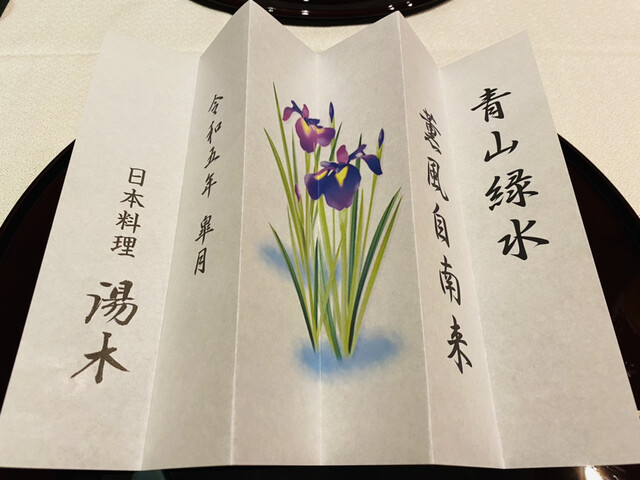 青山緑水
薫風自南来
令和五年 皐月
日本料理 湯木